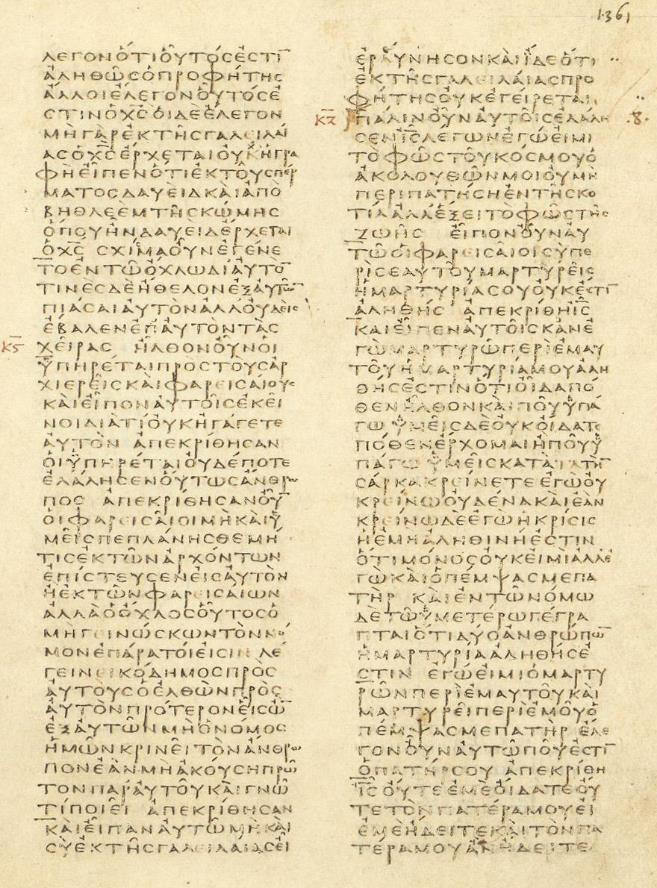 1361
ΛΕΓΟΝΟΤΙΟΥΤΟϹΕϹΤΙ̅
ΑΛΗΘΩϹΟΠΡΟΦΗΤΗϹ
ΑΛΛΟΙΕΛΕΓΟΝΟΥΤΟϹΕ
ϹΤΙΝΟΧ̅Ϲ̅ΟΙΔΕΕΛΕΓΟΝ
ΜΗΓΑΡΕΚΤΗϹΓΑΛΕΙΛΑΙ
ΑϹΟΧ̅Ϲ̅ΕΡΧΕΤΑΙΟΥΧΗΓΡΑ
ΦΗΕΙΠΕΝΟΤΙΕΚΤΟΥϹΠΕΡ
ΜΑΤΟϹΔΑΥΕΙΔΚΑΙΑΠΟ
ΒΗΘΛΕΕΜΤΗϹΚΩΜΗϹ
ΟΠΟΥΗΝΔΑΥΕΙΔΕΡΧΕΤΑΙ
ΟΧ̅Ϲ̅ ϹΧΙϹΜΑΟΥΝΕΓΕΝΕ
ΤΟΕΝΤΩΟΧΛΩΔΙΑΥΤΟ̅
ΤΙΝΕϹΔΕΗΘΕΛΟΝΕΞΑΥΤΩ̅
ΠΙΑϹΑΙΑΥΤΟΝΑΛΛΟΥΔΕΙϹ
ΕΒΑΛΕΝΕΠΑΥΤΟΝΤΑϹ
Κ̅Ϛ̅ ΧΕΙΡΑϹ ΗΛΘΟΝΟΥΝΟΙ
ΥΠΗΡΕΤΑΙΠΡΟϹΤΟΥϹΑΡ
ΧΙΕΡΕΙϹΚΑΙΦΑΡΕΙϹΑΙΟΥϹ
ΚΑΙΕΙΠΟΝΑΥΤΟΙϹΕΚΕΙ
ΝΟΙΔΙΑΤΙΟΥΚΗΓΑΓΕΤΕ
ΑΥΤΟΝ ΑΠΕΚΡΙΘΗϹΑΝ
ΟΙΥΠΗΡΕΤΑΙΟΥΔΕΠΟΤΕ
ΕΛΑΛΗϹΕΝΟΥΤΩϹΑΝΘΡΩ
ΠΟϹ ΑΠΕΚΡΙΘΗϹΑΝΟΥ̅
ΟΙΦΑΡΕΙϹΑΙΟΙΜΗΚΑΙΥ
ΜΕΙϹΠΕΠΛΑΝΗϹΘΕΜΗ
ΤΙϹΕΚΤΩΝΑΡΧΟΝΤΩΝ
ΕΠΙϹΤΕΥϹΕΝΕΙϹΑΥΤΟΝ
ΗΕΚΤΩΝΦΑΡΕΙϹΑΙΩΝ
ΑΛΛΑΟΟΧΛΟϹΟΥΤΟϹΟ
ΜΗΓΕΙΝΩϹΚΩΝΤΟΝΝΟ
ΜΟΝΕΠΑΡΑΤΟΙΕΙϹΙΝ ΛΕ
ΓΕΙΝΕΙΚΟΔΗΜΟϹΠΡΟϹ
ΑΥΤΟΥϹΟΕΛΘΩΝΠΡΟϹ
ΑΥΤΟΝΠΡΟΤΕΡΟΝΕΙϹΩ̅
ΕΞΑΥΤΩΝΜΗΟΝΟΜΟϹ
ΗΜΩΝΚΡΙΝΕΙΤΟΝΑΝΘΡΩ
ΠΟΝΕΑΝΜΗΑΚΟΥϹΗΠΡΩ̅
ΤΟΝΠΑΡΑΥΤΟΥΚΑΙΓΝΩ
ΤΙΠΟΙΕΙ ΑΠΕΚΡΙΘΗϹΑΝ
ΚΑΙΕΙΠΑΝΑΥΤΩΜΗΚΑΙ
ϹΥΕΚΤΗϹΓΑΛΕΙΛΑΙΑϹΕΙ
ΕΡΑΥΝΗϹΟΝΚΑΙΙΔΕΟΤΙ
ΕΚΤΗϹΓΑΛΕΙΛΑΙΑϹΠΡΟ
ΦΗΤΗϹΟΥΚΕΓΕΙΡΕΤΑΙ
Κ̅Ζ̅ ΠΑΛΙΝΟΥΝΑΥΤΟΙϹΕΛΑΛΗ .8.
ϹΕΝΙ̅Ϲ̅ΛΕΓΩΝΕΓΩΕΙΜΙ
ΤΟΦΩϹΤΟΥΚΟϹΜΟΥΟ
ΑΚΟΛΟΥΘΩΝΜΟΙΟΥΜΗ
ΠΕΡΙΠΑΤΗϹΗΕΝΤΗϹΚΟ
ΤΙΑΑΛΛΕΞΕΙΤΟΦΩϹΤΗϹ
ΖΩΗϹ ΕΙΠΟΝΟΥΝΑΥ
ΤΩΟΙΦΑΡΕΙϹΑΙΟΙϹΥΠΕ
ΡΙϹΕΑΥΤΟΥΜΑΡΤΥΡΕΙϹ
ΗΜΑΡΤΥΡΙΑϹΟΥΟΥΚΕϹΤΙ̅
ΑΛΗΘΗϹ ΑΠΕΚΡΙΘΗΙ̅Ϲ̅
ΚΑΙΕΙΠΕΝΑΥΤΟΙϹΚΑΝΕ
ΓΩΜΑΡΤΥΡΩΠΕΡΙΕΜΑΥ
ΤΟΥΗΜΑΡΤΥΡΙΑΜΟΥΑΛΗ
ΘΗϹΕϹΤΙΝΟΤΙΟΙΔΑΠΟ
ΘΕΝΗΛΘΟΝΚΑΙΠΟΥΥΠΑ
ΓΩ ΥΜΕΙϹΔΕΟΥΚΟΙΔΑΤΕ
ΠΟΘΕΝΕΡΧΟΜΑΙΗΠΟΥΥ
ΠΑΓΩΥΜΕΙϹΚΑΤΑΤΗ̅
ϹΑΡΚΑΚΡΕΙΝΕΤΕΕΓΩΟΥ
ΚΡΕΙΝΩΟΥΔΕΝΑΚΑΙΕΑΝ
ΚΡΕΙΝΩΔΕΕΓΩΗΚΡΙϹΙϹ
ΗΕΜΗΑΛΗΘΙΝΗΕϹΤΙΝ
ΟΤΙΜΟΝΟϹΟΥΚΕΙΜΙΑΛΛΕ
ΓΩΚΑΙΟΠΕΜΨΑϹΜΕΠΑ
ΤΗΡ ΚΑΙΕΝΤΩΝΟΜΩ
ΔΕΤΩΥΜΕΤΕΡΩΓΕΓΡΑ
ΠΤΑΙΟΤΙΔΥΟΑΝΘΡΩΠΩ̅
ΗΜΑΡΤΥΡΙΑΑΛΗΘΗϹΕ
ϹΤΙΝ ΕΓΩΕΙΜΙΟΜΑΡΤΥ
ΡΩΝΠΕΡΙΕΜΑΥΤΟΥΚΑΙ
ΜΑΡΤΥΡΕΙΠΕΡΙΕΜΟΥΟ
ΠΕΜΨΑϹΜΕΠΑΤΗΡ ΕΛΕ
ΓΟΝΟΥΝΑΥΤΩΠΟΥΕϹΤΙ̅
ΟΠΑΤΗΡϹΟΥ ΑΠΕΚΡΙΘΗ
Ι̅Ϲ̅ΟΥΤΕΕΜΕΟΙΔΑΤΕΟΥ
ΤΕΤΟΝΠΑΤΕΡΑΜΟΥΕΙ
ΕΜΕΗΔΕΙΤΕΚΑΙΤΟΝΠΑ
ΤΕΡΑΜΟΥΑΝΗΔΕΙΤΕ